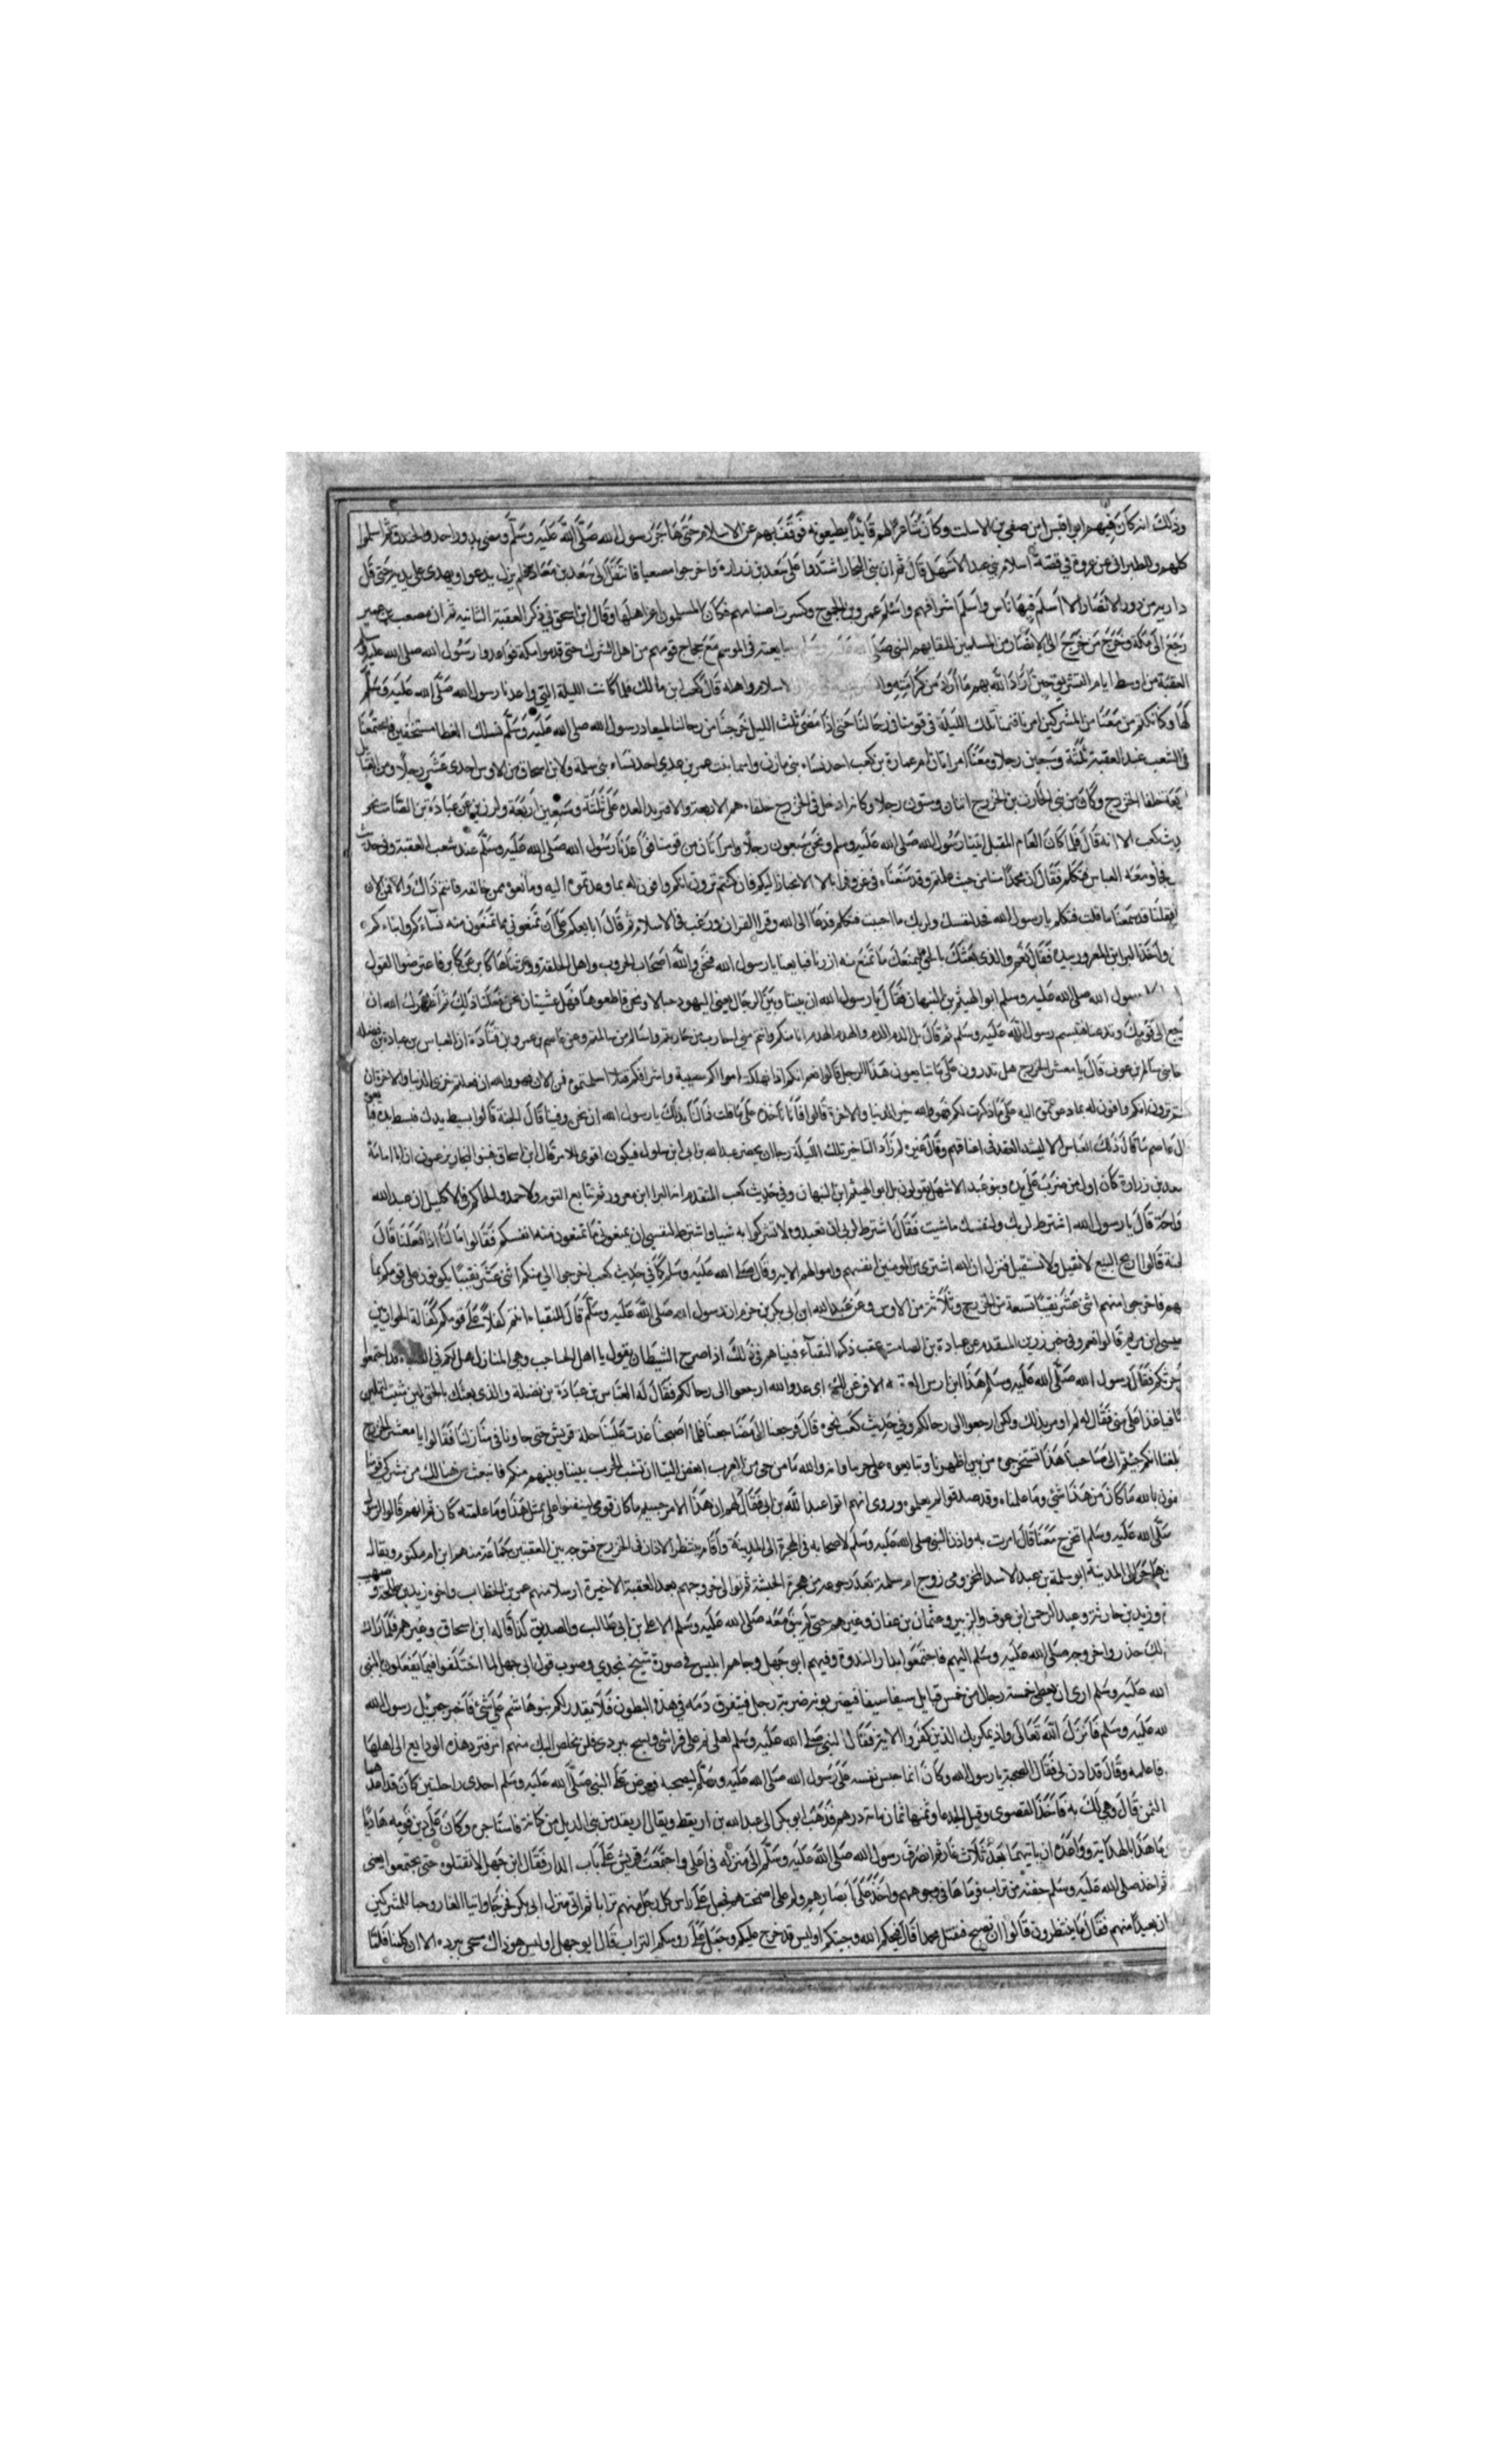 وذلك انه كان فيهم ابو اقيس ابن صفي بن الاسلت وكان شاعرا لهم قايدا يطيعونه فوقف بهم عن الاسلام حتى هاجر رسول الله صلى الله عليه وسلم ومضى بدر واحد والخندق ثم اسلموا
كلهم وللطبراني عن عروة في قصة اسلام بني عبد الاشهل قال ثم ان بني النجار اشتدوا على سعد بن زرارة واخرجوا مصعبا فانتقل الى سعد بن معاذ فلم يزل يدعوا ويهدي على يديه حتى قل
دار من دور الانصار الا اسلم فيها ناس واسلم اشرافهم واسلم عمرو بن الجموح وكسرت اصنامهم فكان المسلمون اعز اهلها وقال ابن اسحق في ذكر العقبة الثانية ثم ان مصعب بن عمير
رجع الى مكة وخرج من خرج الى الانصار من المسلمين للقايهم النبي صلى الله عليه وسلم بايعته في الموسم مع حجاج قومهم من اهل الشرك حتى قدموا مكة فواعدوا رسول الله صلى الله عليه وسلم
العقبة من اوسط ايام التشريق حين اراد الله بهم ما اراد من كرامته اسلام واهله قال كعب ابن مالك فلما كانت الليلة التي واعدنا رسول الله صلى الله عليه وسلم
لها وكنا نكتم من معنا من المشركين امرنا فنمنا تلك الليلة في قومنا في رحالنا حتى اذا مضى ثلث الليل خرجنا من رحالنا لميعاد رسول الله صلى الله عليه وسلم نتسلل القطا مستخفين فاجتمعنا
في الشعب عند العقبة ثلثة وسبعين رجلا ومعنا امراتان ام عمارة بن كعب احد نساء بني مازن واسما بنت عمر بن عدي احد نساء بني سلمة ولابن اسحاق من الاوس احدى عشر رجلا ومن
خلفا الخزرج وكان من بني الحارث بن الخزرج اثنان وستون رجلا وكانوا دخل في الخزرج خلفاء هم الاربعة والا فتزيد العدة على ثلثة وسبعين اربعة ولرزين عن عبادة بن الصامت نحو
يث كعب الا انه قال فلما كان العام المقبل اتينا رسول الله صلى الله عليه وسلم ونحن سبعون رجلا وامراتان من قومنا فواعدنا رسول الله صلى الله عليه وسلم عند شعب العقبة وفي حديث
ومعه العباس فتكلم فقال ان محمدا منا من حيث علمتم وقد منعناه في عز وقد ابى الا الانحياز اليكم فان كنتم ترون انكم وافون له بما وعدتموه اليه ومانعوه ممن خالفه فانتم ذاك والا فمن الان
فقلنا قد سمعنا ما قلت فتكلم يا رسول الله خذ لنفسك ولربك ما احببت فتكلم فدعا الى الله وقرا القران ورغب في الاسلام ثم قال ابايعكم على ان تمنعوني مما تمنعون منه نساءكم وابناءكم
واخذ البرا بن المعرور بيده فقال نعم والذي بعثك بالحق لنمنعنك ما نمنع منه ازرنا فبايعنا يا رسول الله فنحن والله اصحاب الحروب واهل الحلقة ورثناها كابرا عن كابر فاعترضوا القول
رسول الله صلى الله عليه وسلم ابو الهيثم بن التيهان فقال يا رسول الله ان بيننا وبين الرجال يعني اليهود حبالا ونحن قاطعوها فهل عسيتان نحن فعلنا ذلك ثم اظهرك الله ان
جع الى قومك وتدعنا فتبسم رسول الله عليه وسلم ثم قال بل الدم الدم والهدم الهدم انا منكم وانتم مني احارب من حاربتم واسالم من سالمتم وعن عاصم بن عمرو بن قتادة ان العباس بن عبادة بن نضله
خا بني سالم بن عوف قال يا معشر الخزرج هل تدرون على ما تبايعون هذا الرجل قالوا نعم
ترون انكم وافون له بما دعوتموه اليه على ما ذكرت لكم فهو والله خير الدنيا والاخرة قالوا فانا ناخذه على ما قلت فما لنا بذلك يا رسول الله ان نحن وفينا قال الجنة قالوا ابسط يدك فبسط يده
ال عاصم ما قال ذلك العباس الا ليشد العقد في اعناقهم وقال غيره لم ار التاخير تلك الليلة رجا ان يحضر عبد الله بن ابي ابن سلول فيكون اقوى للامر قال ابن اسحاق فبنوا النجار يزعمون ان ابا امامة
سعد بن زرارة كان اول من ضرب على يده وبنو عبد الاشهل يقولون بل ابو الهيثم ابن التيهان وفي حديث كعب المتقدم انه البرا ابن معرور ثم تتابع القوم ولاحمد والحاكم في الاكليل ان عبد الله
واحة قال يا رسول الله اشترط لربك ولنفسك ما شيت فقال اشترط لربي ان تعبدوه ولا تشركوا به شيا واشترط لنفسي ان تمنعوني ما تمنعون منه انفسكم فقالوا ما لنا اذا فعلنا قال
لجنة قالوا ربح البيع لا نقيل ولا نستقيل فنزل ان الله اشترى من المومنين انفسهم واموالهم الاية وقال صلى الله عليه وسلم كما في حديث كعب اخرجوا الي منكم اثني عشر نقيبا يكونون على قومكم بما
بهم فاخرجوا منهم اثني عشر نقيبا تسعة من الخزرج وثلاثة من الاوس وعن عبد الله ابن ابي بكر بن حزم ان رسول الله صلى الله عليه وسلم قال للنقباء انتم كفلاء على قومكم كفالة الحواريين
عيسى ابن مريم قالوا نعم وفي خبر رزين المتقدم عن عبادة بن الصامت عقب ذكر النقبآء فبيناهم في ذلك اذا صرخ الشيطان يقول يا اهل الجباجب وهي المنازل هل لكم في قد اجتمعوا
فقال رسول الله صلى الله عليه وسلم هذا ابن ازب العقبة اي عدو الله ارجعوا الى رحالكم فقال له العباس بن عبادة بن نضلة والذي بعثك بالحق لين شيت لنميلن
باسيافنا غدا على منى فقال له لم اومر بذلك ولكن ارجعوا الى رحالكم وفي حديث كعب نحوه قال فرجعنا الى مضاجعنا فلما اصبحنا غدت علينا جلة قريش حتى جاونا في منازلنا فقالوا يا معشر الخزرج
بلغنا انكم جيتم الى صاحبنا هذا تستخرجوه من بين اظهرنا وتبايعوه على حربنا وانه والله ما من حي من العرب ابغض الينا ان تنشب الحرب بيننا وبينهم منكم فانبعث من هنالك من مشركي قومنا
فون بالله ما كان من هذا شي وما علمناه وقد صدقوا لم يعلموه وروى انهم اتوا عبد الله بن ابي فقال لهم ان هذا الامر جسيم ما كان قومي ليتفقوا على بمثل هذا وما علمته كان
صلى الله عليه وسلم اتخرج معنا قال ما امرت به واذن النبي صلى الله عليه وسلم لاصحابه في الهجرة الى المدينة واقام ينتظر الاذان في الخزرج فتوجه بين العقبتين جماعة منهم ابن ام مكتوم ويقال
هاجر الى المدينة ابو سلمة بن عبد الاسد المخزومي زوج ام سلمة بعد رجوعه من هجرة الحبشة ثم توالى خروجهم بعد العقبة الاخيرة ارسلا منهم عمر بن الخطاب واخوه زيد وطلحة و صهيب
وزيد بن حارثة وعبد الرحمن ابن عوف والزبير وعثمان بن عفان وغيرهم حتى لم يبق معه صلى الله عليه وسلم الا علي بن ابي طالب والصديق كذا قاله ابن اسحاق وغيره فلما رات
ذلك حذروا خروجه صلى الله عليه وسلم اليهم فاجتمعوا بدار الندوة وفيهم ابو جهل وجاهم ابليس في صورة شيخ نجدي وصوب قول ابي جهل لما اختلفوا فيما يفعلون بالنبي
الله عليه وسلم ارى ان يعطى خمسة رجال من خمس قبايل سيفا سيفا فيضربونه ضربة رجل فيتفرق دمه في هذه البطون فلا يقدر لكم بنو هاشم على شي فاخبر جبريل رسول الله
لله عليه وسلم فانزل الله تعالى واذ يمكر بك الذين كفروا الاية فقال النبي صلى الله عليه وسلم لعلي نم على فراشي وتسج ببردي فلن يخلص اليك منهم امر فترد هذه الودايع الى اهلها
فاعلمه وقال قد اذن لي فقال الصحبة يا رسول الله وكان انما حبس نفسه على رسول الله صلى الله عليه وسلم ليصحبه فعرض على النبي صلى الله عليه وسلم احدى راحلتين كان قد اعد هما
الثمن قال وهي لك به فاخذ القصوى وقيل الجدعا وثمنها ثمان ماية درهم فذهب ابو بكر الى عبد الله بن اريقط ويقال اريقد من بني الديل من كنانة فاستاجره وكان على دين قومه هاديا
ما هذا بالهداية وواعده ان ياتيهما بعد ثلاث غار ثم انصرف رسول الله صلى الله عليه وسلم الى منزله فاتى علي واجتمعت قريش على باب الدار فقال ابو جهل لا تقتلوه حتى يجتمعوا يعني
ثم اخذ صلى الله عليه وسلم حفنة من تراب فرماها في وجوههم واخذ على ابصارهم ولم على اصمختهم فجعل على راس كل رجل منهم ترابا ثم اتى منزل ابي بكر فخرجا واتيا الغار وحبا للمشركين
ان بعيدا منهم فقال ما ينتظرون قالوا ان نصبح فنقتل محمدا قال قبحكم الله وخيبكم اوليس قد خرج عليكم وجعل على روسكم التراب قال ابو جهل اوليس هو ذاك سجي ببرده الان كلمنا فلما